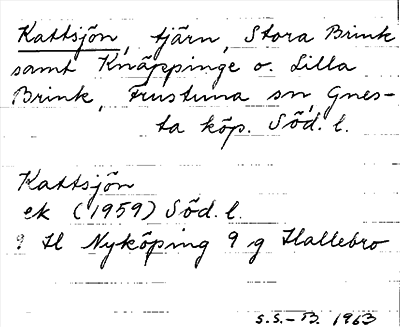 Kattsjön, tjärn, Stora Brink
samt Knäppinge o. Lilla
Brink, Frustuna sn, Gnes-
ta köp. Söd. l.
Kattsjön
ek (1959) Söd. l.
? Hl Nyköping 9 g Hallebro
S.S.-B. 1963